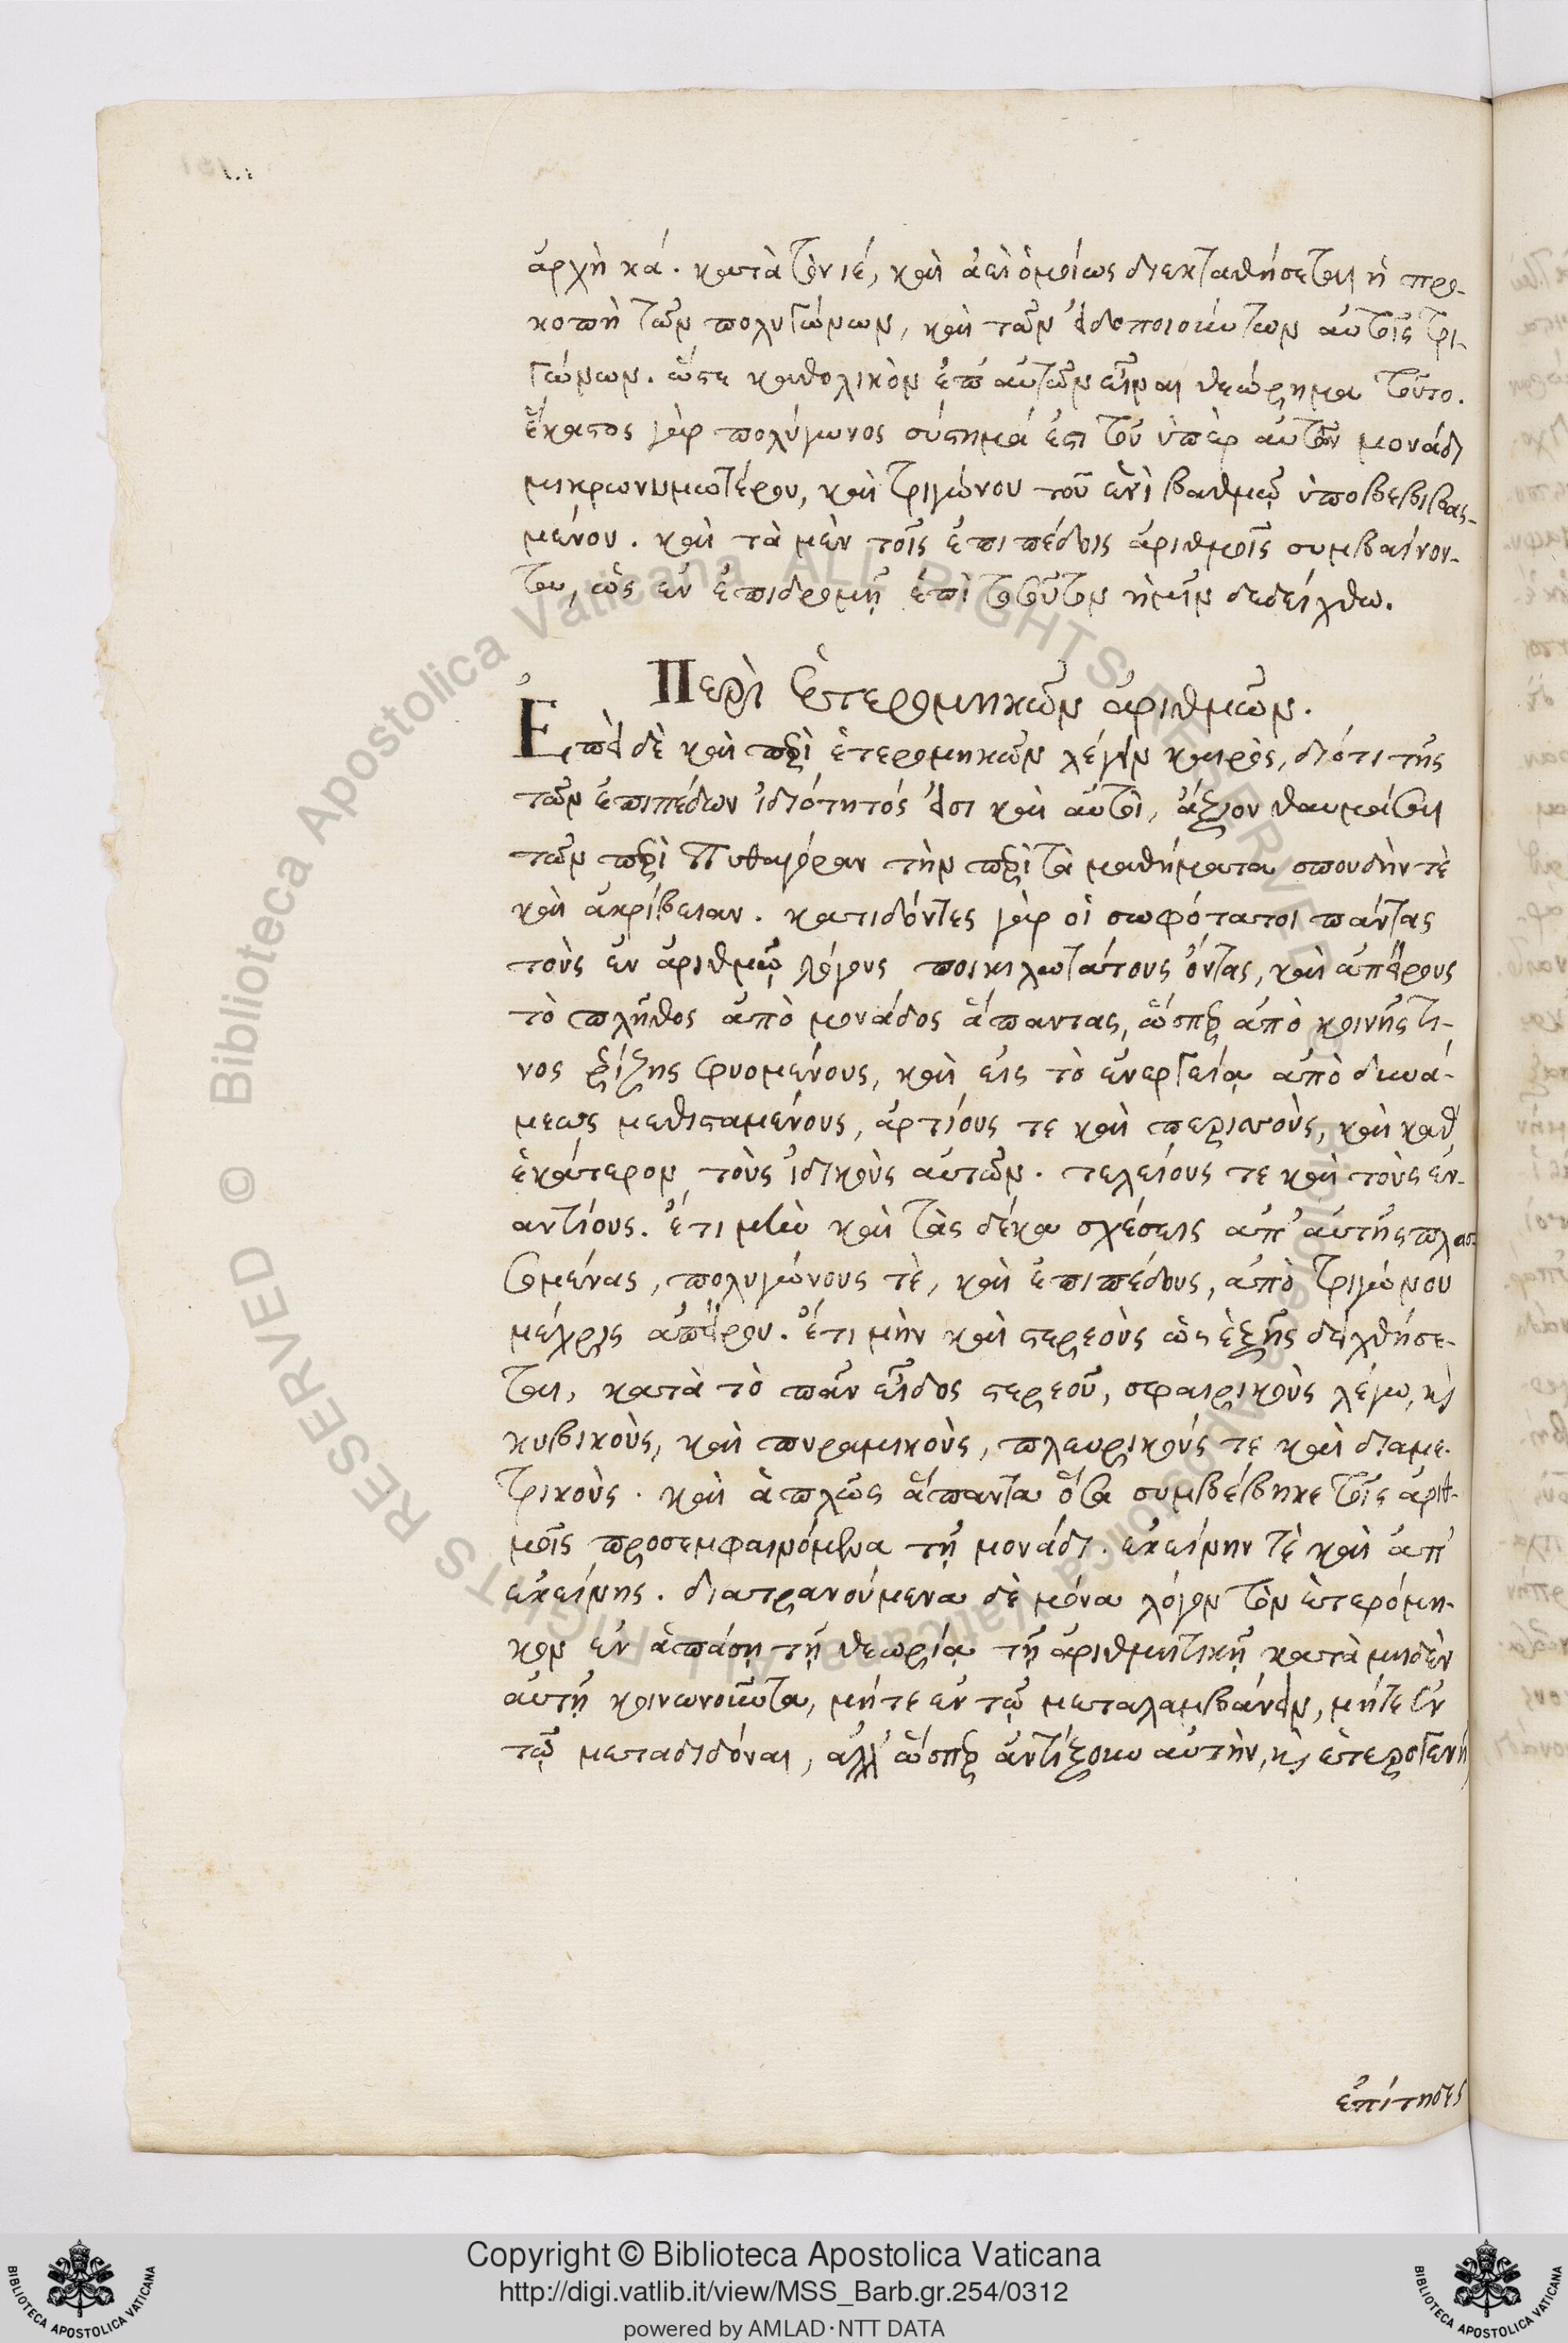 ἀρχὴ κά. κατὰ τὸν ιέ, καὶ ἀεὶ ὁμοίως διεκταθήσεται ἡ προ-
κοπὴ τῶν πολυγώνων, καὶ τῶν εἰδοποιούντων αὐτοῖς τρι-
γώνων. ὥστε καθολικὸν ἐπ' αὐτῶν εἶναι θεώρημα τοῦτο.
ἕκαστος γὰρ πολύγωνος σύστημά ἐστι τοῦ ὑπὲρ αὐτὸν μονάδι
μικρωνυμωτέρου, καὶ τριγώνου τοῦ ἑνὶ βαθμῷ ὑποβεβιβας-
μένου. καὶ τὰ μὲν τοῖς ἐπιπέδοις ἀριθμοῖς συμβαίνον-
τα, ὡς ἐν ἐπιδρομῇ ἐπὶ τοσοῦτον ἡμῖν δεδείχθω.
Περὶ ἑτερομηκῶν ἀριθμῶν.
Ἐπεὶ δὲ καὶ περὶ ἑτερομηκῶν λέγειν καιρὸς, διότι τῆς
τῶν ἐπιπέδων ἰδιότητός εἰσι καὶ αὐτοὶ, ἄξιον θαυμάσαι
τῶν περὶ Πυθαγόραν τὴν περὶ τὰ μαθήματα σπουδήν τὲ
καὶ ἀκρίβειαν. κατιδόντες γὰρ οἱ σωφότατοι πάντας
τοὺς ἐν ἀριθμῷ λόγους ποικιλωτάτους ὄντας, καὶ ἀπείρους
τὸ πλῆθος ἀπὸ μονάδος ἅπαντας, ὥσπερ ἀπὸ κοινῆς τι-
νος ῥίζης φυομένους, καὶ εἰς τὸ ἐνεργείᾳ ἀπὸ δυνά-
μεως μεθισταμένους, ἀρτίους τε καὶ περισσοὺς, καὶ καθ'
ἑκάτερον τοὺς ἰδικοὺς αὐτῶν. τελείους τε καὶ τοὺς ἐν-
αντίους. ἔτι μὴν καὶ τὰς δέκα σχέσεις ἀπ' αὐτῆς πλασ-
σομένας, πολυγώνους τὲ, καὶ ἐπιπέδους, ἀπὸ τριγώνου
μέχρις ἀπείρου. ἔτι μὴν καὶ στερεοὺς ὡς ἑξῆς δειχθήσε-
ται, κατὰ τὸ πᾶν εἶδος στερεοῦ, σφαιρικοὺς λέγω, κὶ
κυβικοὺς, καὶ πυραμικοὺς, πλευρικούς τε καὶ διαμε-
τρικοὺς. καὶ ἁπλῶς ἅπαντα ὅσα συμβέβηκε τοῖς ἀριθ-
μοῖς προσεμφαινόμενα τῇ μονάδι. ἐκείνην τὲ καὶ ἀπ'
ἐκείνης. διατρανούμενα δὲ μόνα λόγον τὸν ἑτερόμη-
κον ἐν ἁπάσῃ τῇ θεωρίᾳ τῇ ἀριθμητικῇ κατὰ μηδὲν
αὐτῇ κοινωνοῦντα, μήτε ἐν τῷ μεταλαμβάνειν, μήτε ἐν
τῷ μεταδιδόναι, ἀλλ' ὥσπερ ἀντίξουν αὐτὴν, κὶ ἑτερογενῆ
ἐπίτηδες
Copyright © Biblioteca Apostolica Vaticana
http://digi.vatlib.it/view/MSS_Barb.gr.254/0312
powered by AMLAD·NTT DATA